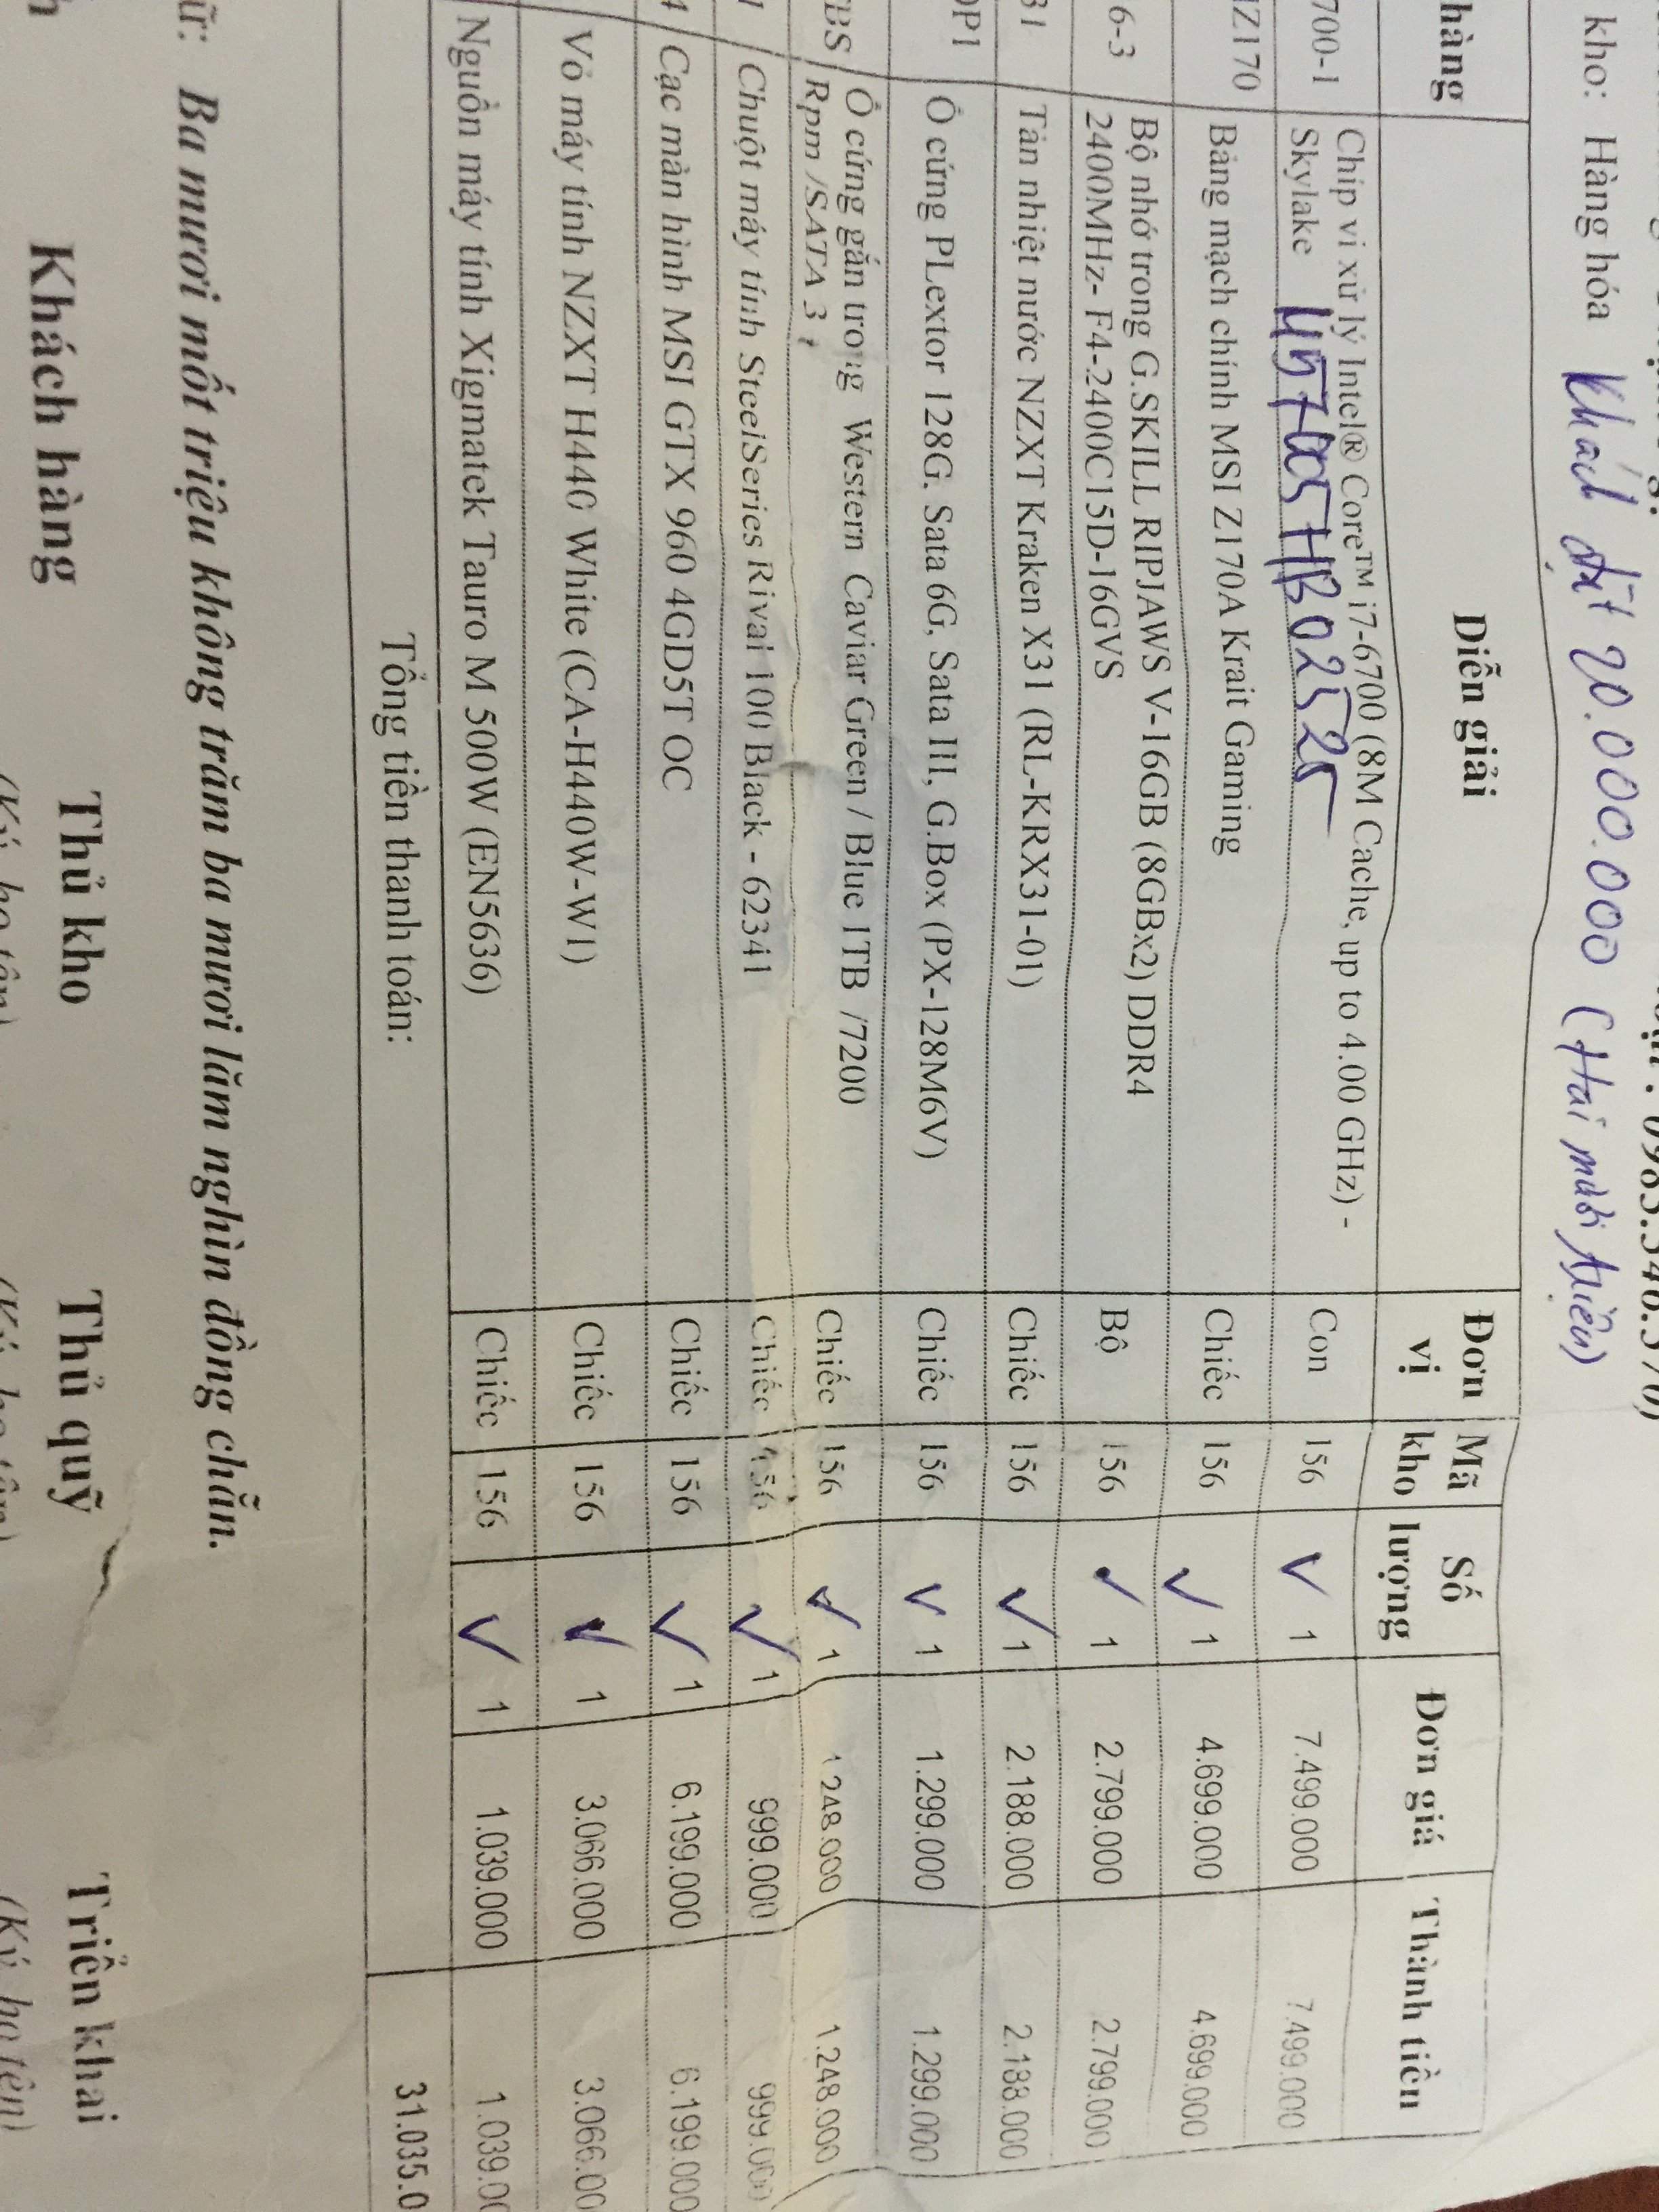 0983.346.370)
kho: Hàng hóa Khách đặt 20.000.000 (Hai mươi triệu)
hàng Diễn giải Đơn vị Mã kho Số lượng Đơn giá Thành tiền
700-1 Chíp vi xử lý Intel® Core™ i7-6700 (8M Cache, up to 4.00 GHz) - Con 156 1 7.499.000 7.499.000
Skylake
Z170 Bảng mạch chính MSI Z170A Krait Gaming Chiếc 156 1 4.699.000 4.699.000
6-3 Bộ nhớ trong G.SKILL RIPJAWS V-16GB (8GBx2) DDR4 Bộ 156 1 2.799.000 2.799.000
2400MHz- F4-2400C15D-16GVS
31 Tản nhiệt nước NZXT Kraken X31 (RL-KRX31-01) Chiếc 156 1 2.188.000 2.188.000
DP1 Ổ cứng PLextor 128G, Sata 6G, Sata III, G.Box (PX-128M6V) Chiếc 156 1 1.299.000 1.299.000
BS Ổ cứng gắn trong Western Caviar Green / Blue 1TB /7200 Chiếc 156 1 1.248.000 1.248.000
Rpm /SATA 3
1 Chuột máy tính SteelSeries Rival 100 Black - 62341 Chiếc 156 1 999.000 999.000
4 Cạc màn hình MSI GTX 960 4GD5T OC Chiếc 156 1 6.199.000 6.199.000
Vỏ máy tính NZXT H440 White (CA-H440W-W1) Chiếc 156 1 3.066.000 3.066.00
Nguồn máy tính Xigmatek Tauro M 500W (EN5636) Chiếc 156 1 1.039.000 1.039.00
Tổng tiền thanh toán: 31.035.0
ữ: Ba mươi mốt triệu không trăm ba mươi lăm nghìn đồng chẵn.
Khách hàng Thủ kho Thủ quỹ Triển khai
(Ký, họ tên) (Ký, họ tên) (Ký, họ tên)